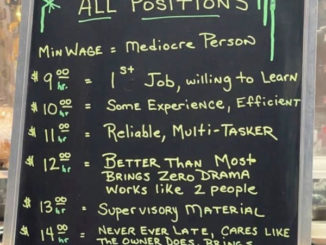 ALL POSITIONS
MIN WAGE = MEDIOCRE PERSON
$9.00 hr = 1st JOB, WILLING TO LEARN
$10.00 hr = SOME EXPERIENCE, EFFICIENT
$11.00 hr = RELIABLE, MULTI-TASKER
$12.00 hr = BETTER THAN MOST
BRINGS ZERO DRAMA
WORKS LIKE 2 PEOPLE
$13.00 hr = SUPERVISORY MATERIAL
$14.00 hr = NEVER EVER LATE, CARES LIKE
THE OWNER DOES, BRINGS